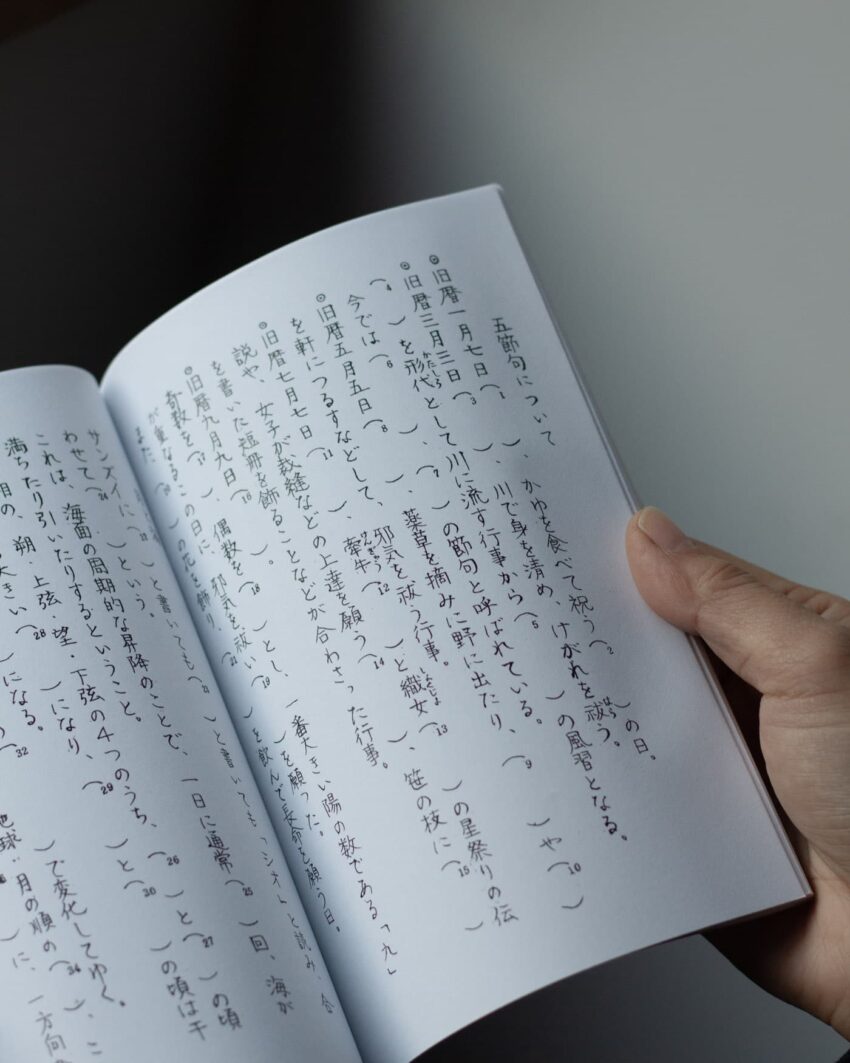 五節句について
◎旧暦一月七日(1　)、かゆを食べて祝う(2　)の日。
◎旧暦三月三日(3　)、川で身を清め、けがれを祓う。
(4　)を形代として川に流す行事から(5　)の風習となる。
今では(6　)、(7　)の節句と呼ばれている。
◎旧暦五月五日(8　)、薬草を摘みに野に出たり、(9　)や(10　)
を軒につるすなどして、邪気を祓う行事。
◎旧暦七月七日(11　)、牽牛(12　)と織女(13　)の星祭りの伝
説や、女子が裁縫などの上達を願う(14　)、笹の枝に(15　)
を書いた短冊を飾ることなどが合わさった行事。
◎旧暦九月九日(16　)。
奇数を(17　)、偶数を(18　)とし、一番大きい陽の数である「九」
が重なるこの日に、邪気を祓い(19　)を願った。
また、(20　)の花を飾り、(21　)を飲んで長命を願う日。
サンズイに(　)と書いても(　)と書いても「シオ」と読み、合
わせて(24　)という。
これは、海面の周期的な昇降のことで、一日に通常(25　)回、海が
満ちたり引いたりするということ。
朔、上弦、望、下弦の4つのうち、(26　)と(27　)の頃
(28　)になり、(29　)と(30　)の頃は干
になる。
(32　)で変化してゆく。
月の順の(34　)、こ
に、一方向